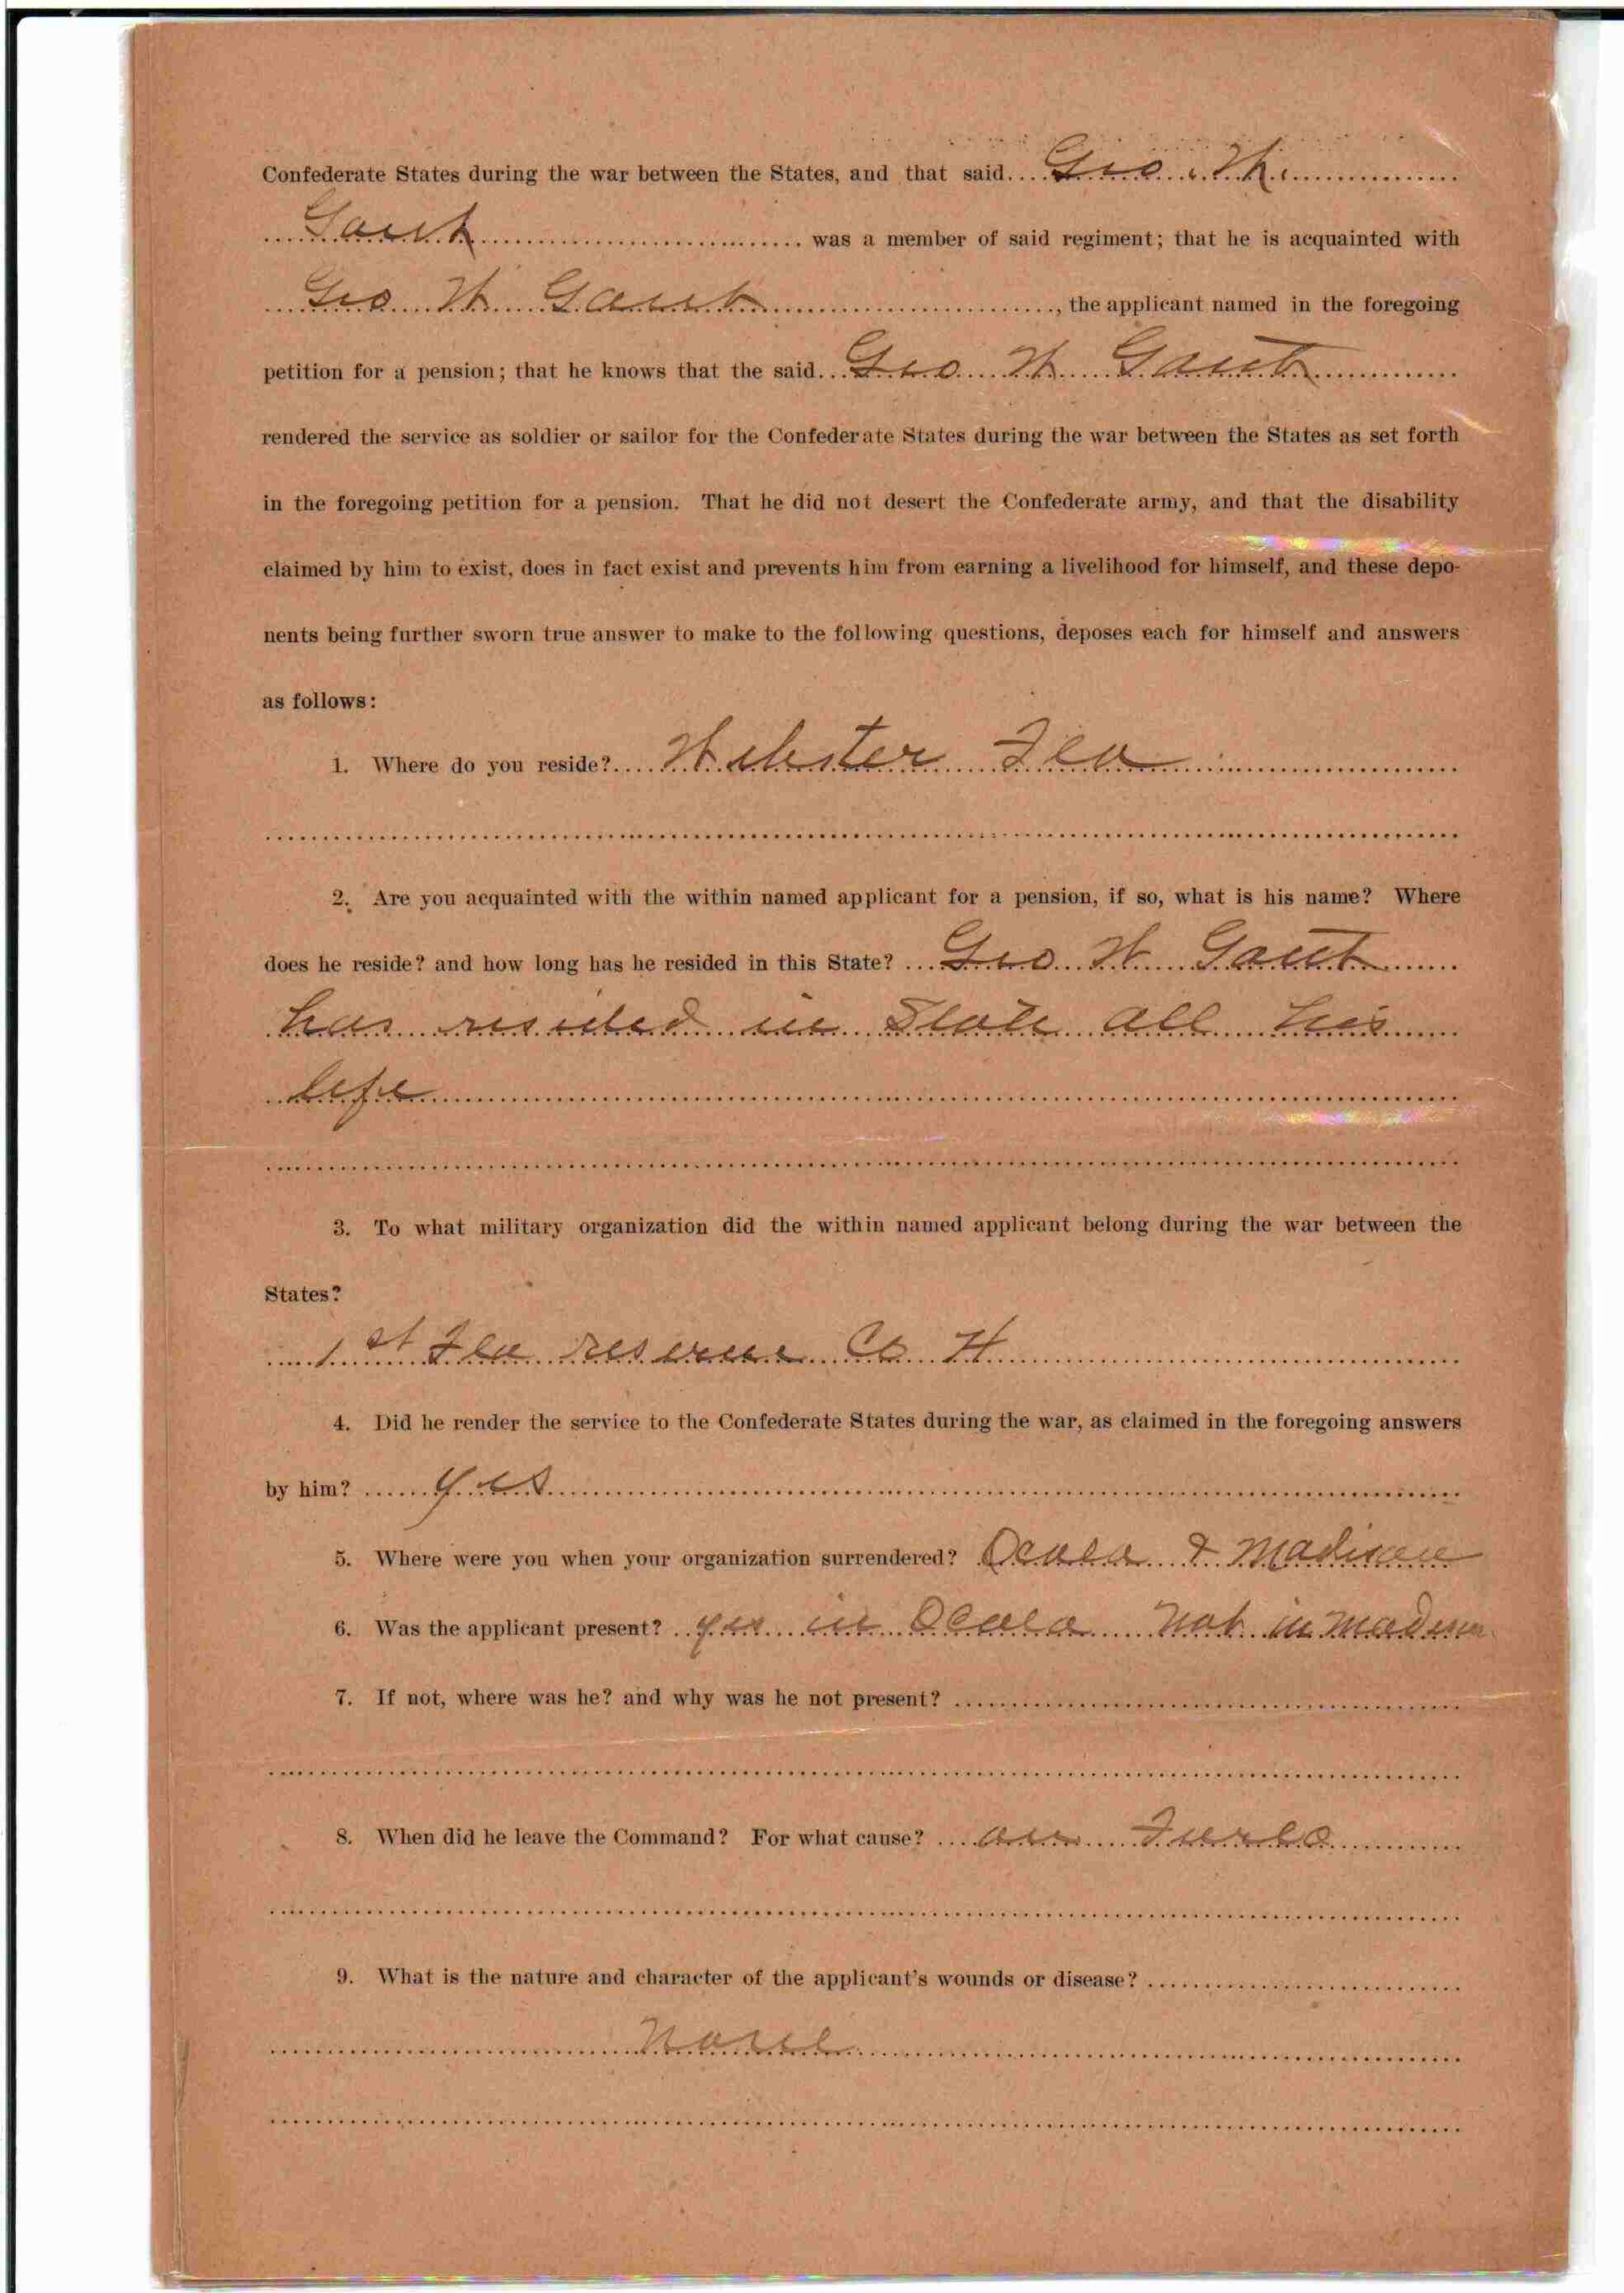 Confederate States during the war between the States, and that said....Geo. W.
Gant was a member of said regiment; that he is acquainted with
Geo W Gant, the applicant named in the foregoing
petition for a pension; that he knows that the said...Geo W Gant
rendered the service as soldier or sailor for the Confederate States during the war between the States as set forth
in the foregoing petition for a pension. That he did not desert the Confederate army, and that the disability
claimed by him to exist, does in fact exist and prevents him from earning a livelihood for himself, and these depo-
nents being further sworn true answer to make to the following questions, deposes each for himself and answers
as follows:
1. Where do you reside?....Webster Fla
2. Are you acquainted with the within named applicant for a pension, if so, what is his name? Where
does he reside? and how long has he resided in this State? ....Geo W Gant
has resided in State all his
life
3. To what military organization did the within named applicant belong during the war between the
States?
1st Fla reserve Co H
4. Did he render the service to the Confederate States during the war, as claimed in the foregoing answers
by him? ......yes
5. Where were you when your organization surrendered? Ocala & Madison
6. Was the applicant present? ..yes in Ocala not in Madison
7. If not, where was he? and why was he not present?
8. When did he leave the Command? For what cause? ....on Furlo
9. What is the nature and character of the applicant's wounds or disease?
None